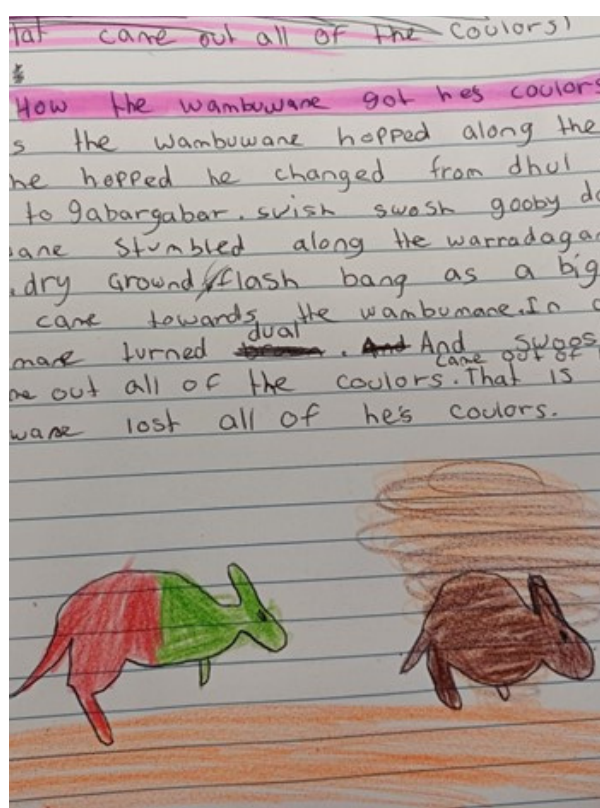 tat came out all of the coulors!
How the wambuwane got hes coulors
s the wambuwane hopped along the
he hopped he changed from dhul
to gabargabar. swish swosh gooby do
ane stumbled along the warradagar
.dry ground, flash bang as a big
came towards the wambumane. In a
mane turned dual . And And swoos
came out of
me out all of the coulors. That is
wane lost all of he's coulors.